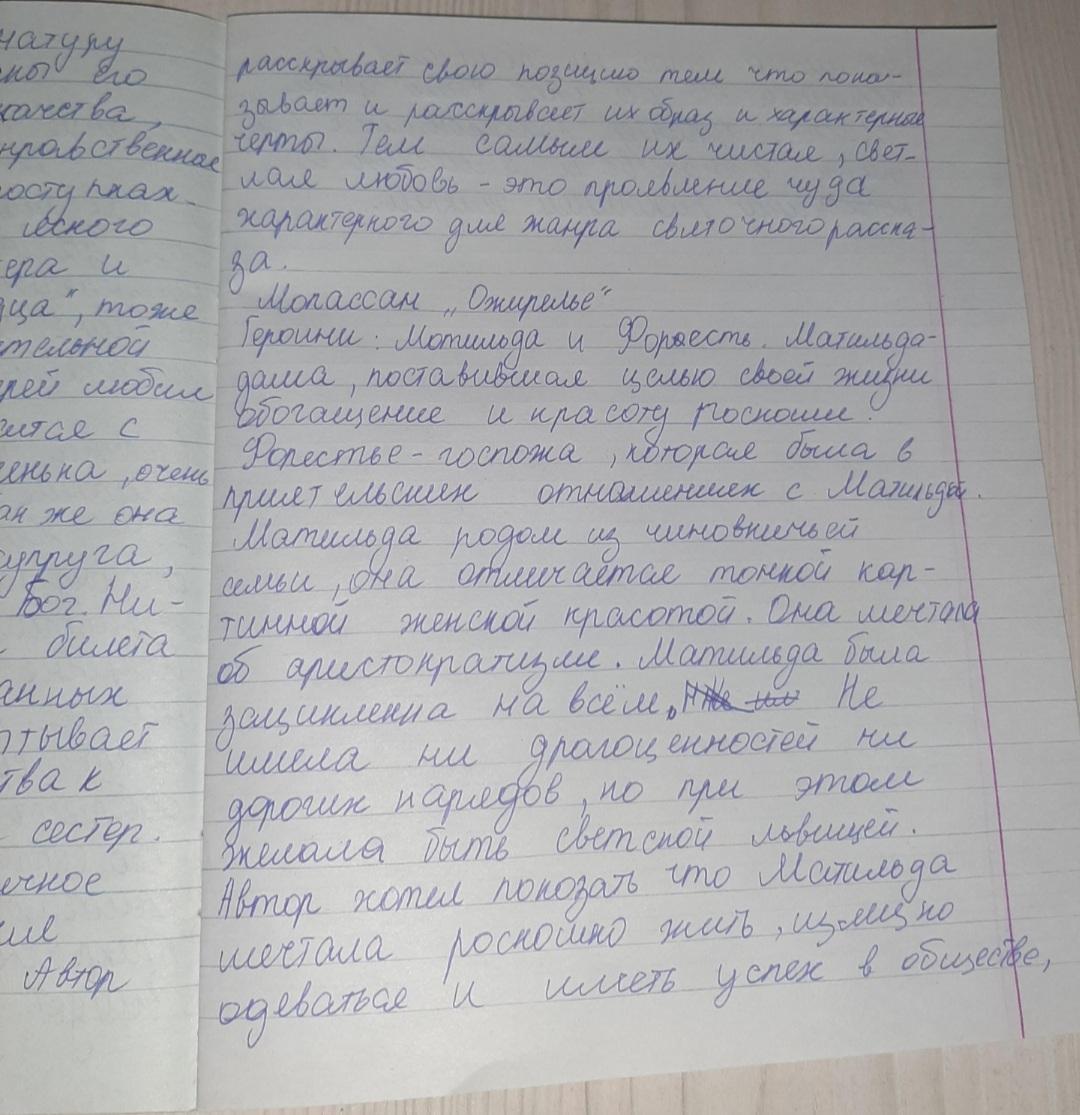 натуру
ны его
качества,
нравственное
поступках.
еского
ера и
ца", тоже
тельной
рей любил
ится с
енька, очень
ак же она
супруга,
Бог. Ни-
билета
анных
тывает
тва к
сестер.
ечное
ие
Автор
расскрывает свою позицию тем что пока-
зывает и расскрывает их образ и характерные
черты. Тем самым их чистая, свет-
лая любовь - это проявление чуда
характерного для жанра святочного расска-
за.
Мопассан „Ожирелье"
Героини: Матильда и Форестье. Матильда-
дама, поставившая целью своей жизни
обогащение и красоту роскоши.
Форестье - госпожа, которая была в
приятельских отношениях с Матильдой.
Матильда родом из чиновничьей
семьи, она отличается тонкой кар-
тинной женской красотой. Она мечтала
об аристократизме. Матильда была
зациклена на всём. Не
имела ни драгоценностей ни
дорогих нарядов, но при этом
желала быть светской львицей.
Автор хотел показать что Матильда
мечтала роскошно жить, изящно
одеваться и иметь успех в обществе,